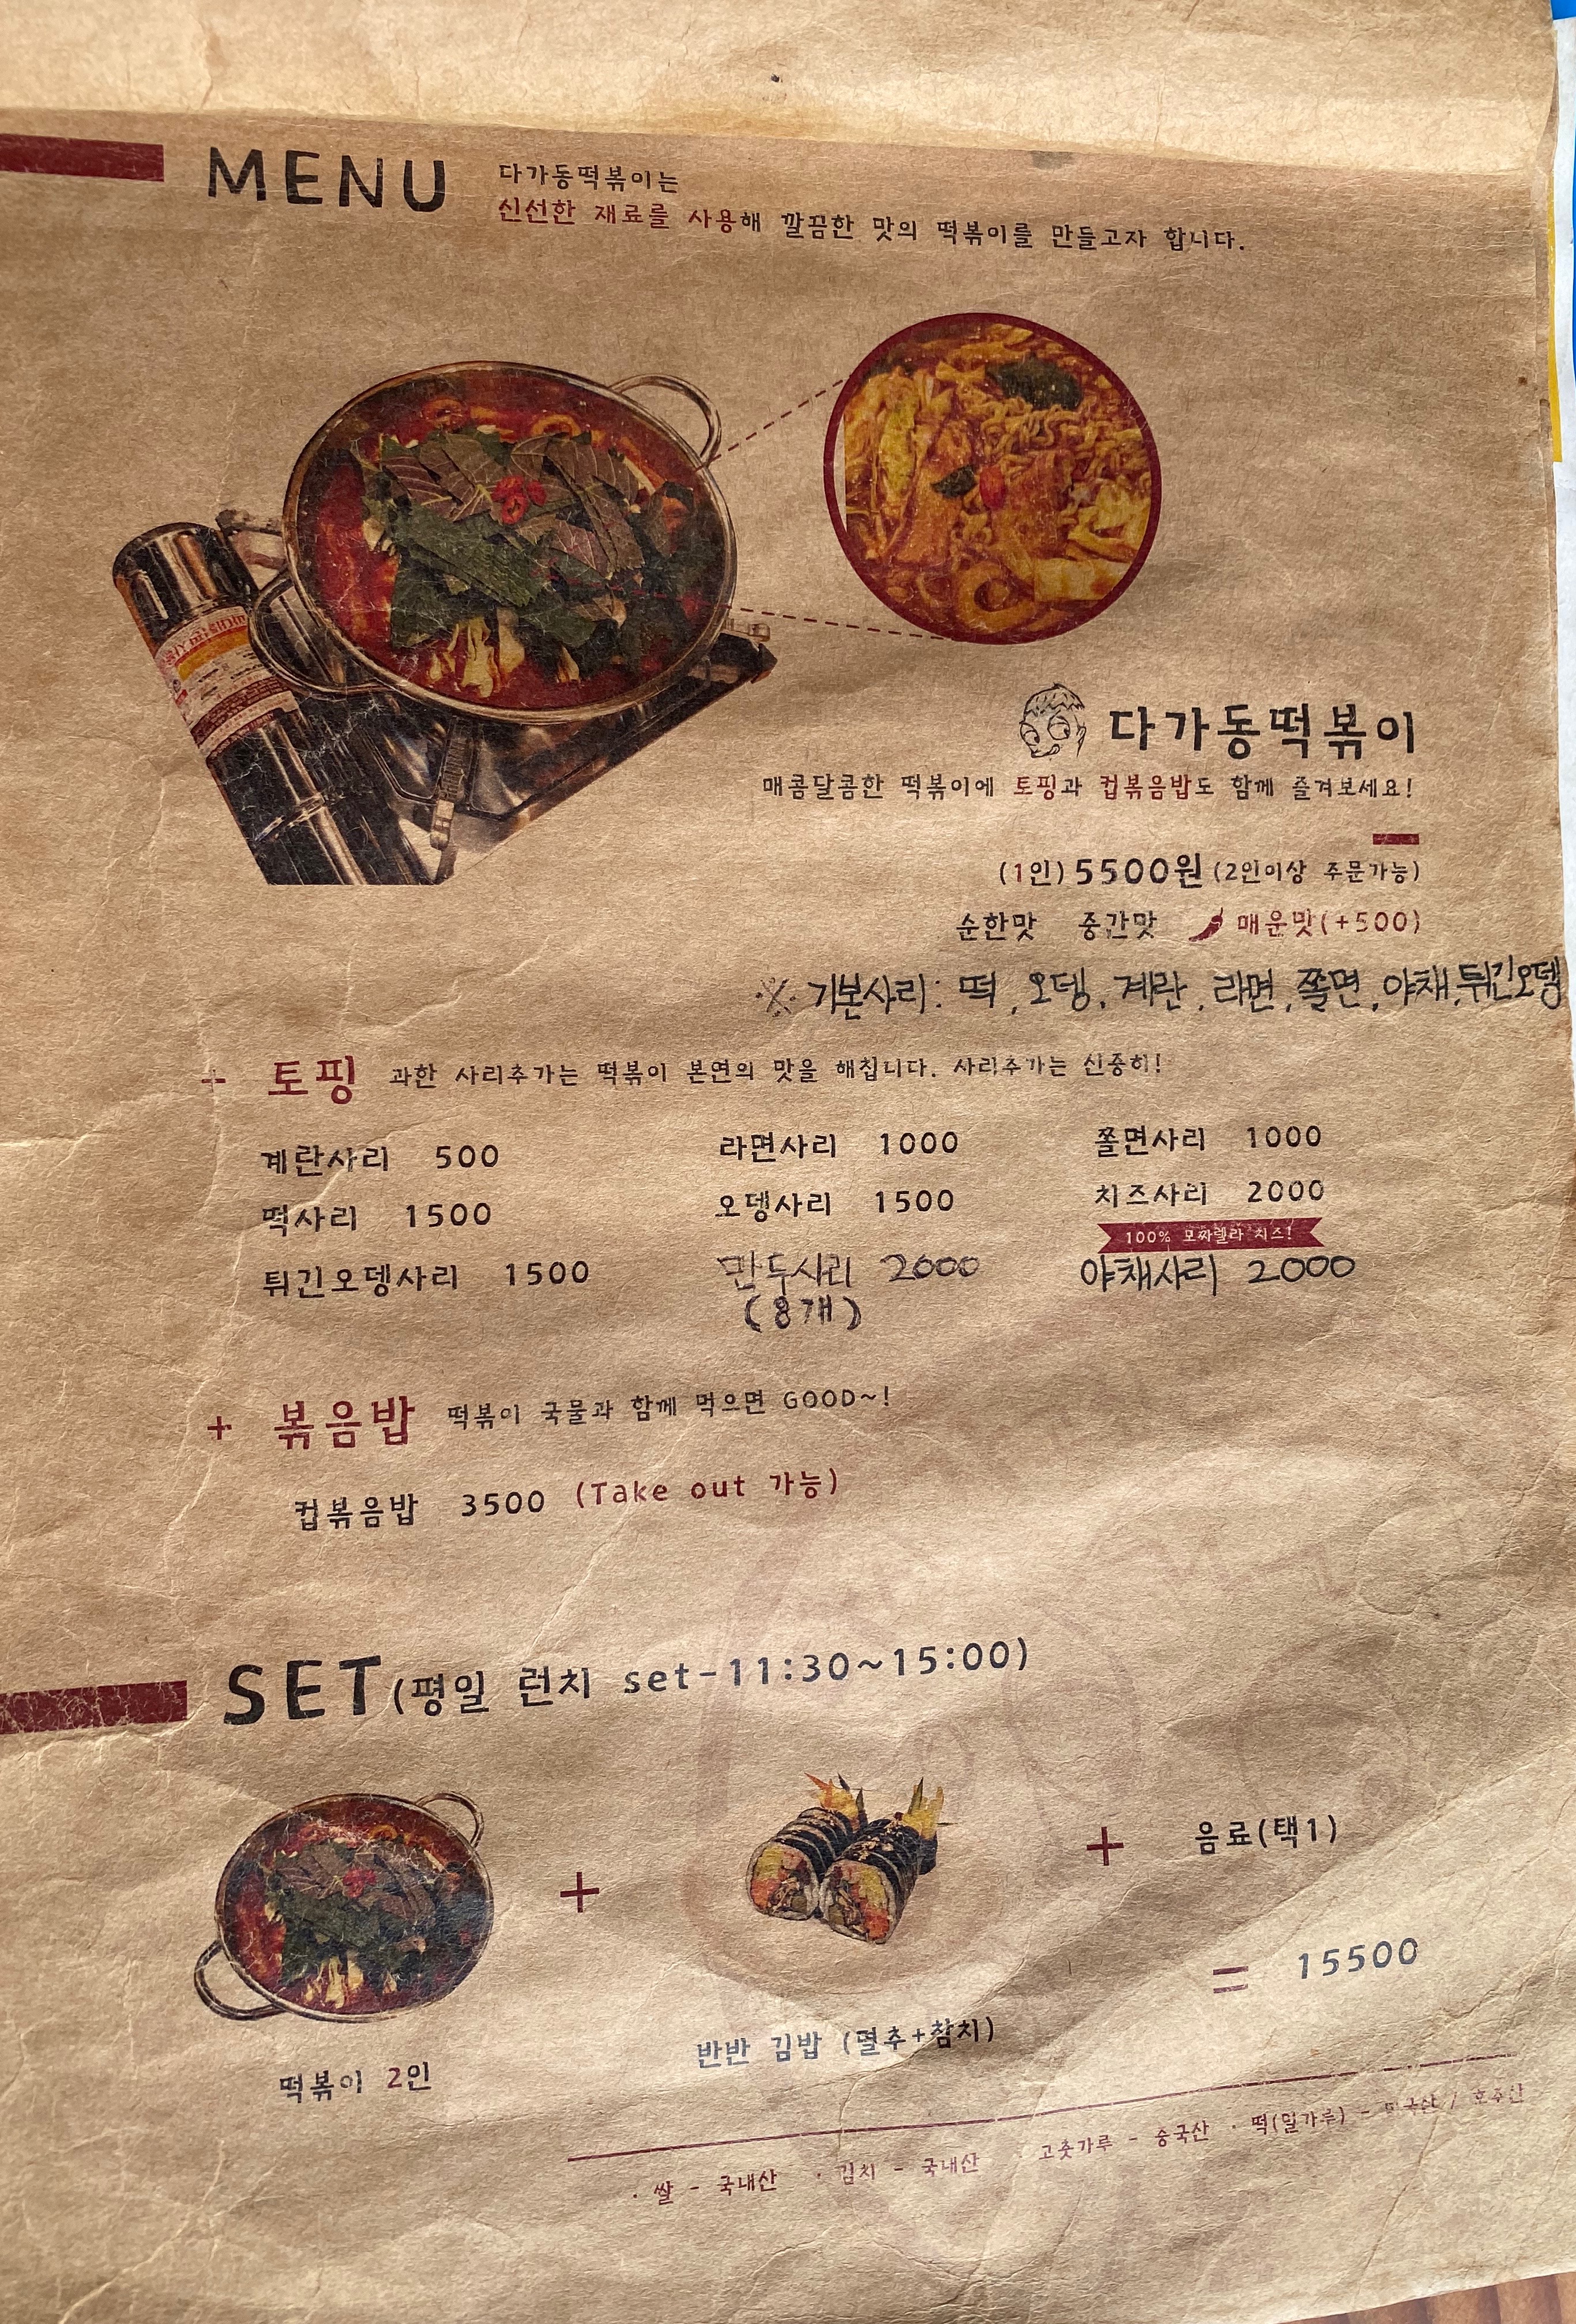 MENU
다가동떡볶이는
신선한 재료를 사용해 깔끔한 맛의 떡볶이를 만들고자 합니다.
다가동떡볶이
매콤달콤한 떡볶이에 토핑과 컵볶음밥도 함께 즐겨보세요!
(1인) 5500원 (2인이상 주문가능)
순한맛 중간맛 매운맛(+500)
※ 기본사리: 떡, 오뎅, 계란, 라면, 쫄면, 야채, 튀긴오뎅
+ 토핑 과한 사리추가는 떡볶이 본연의 맛을 해칩니다. 사리추가는 신중히!
계란사리 500 라면사리 1000 쫄면사리 1000
떡사리 1500 오뎅사리 1500 치즈사리 2000
100% 모짜렐라 치즈!
튀긴오뎅사리 1500 만두사리 2000 야채사리 2000
(8개)
+ 볶음밥 떡볶이 국물과 함께 먹으면 GOOD~!
컵볶음밥 3500 (Take out 가능)
SET(평일 런치 set-11:30~15:00)
+ + 음료(택1)
= 15500
떡볶이 2인 반반 김밥 (멸추+참치)
· 쌀 - 국내산 · 김치 - 국내산 · 고춧가루 - 중국산 · 떡(밀가루) - 미국산 / 호주산